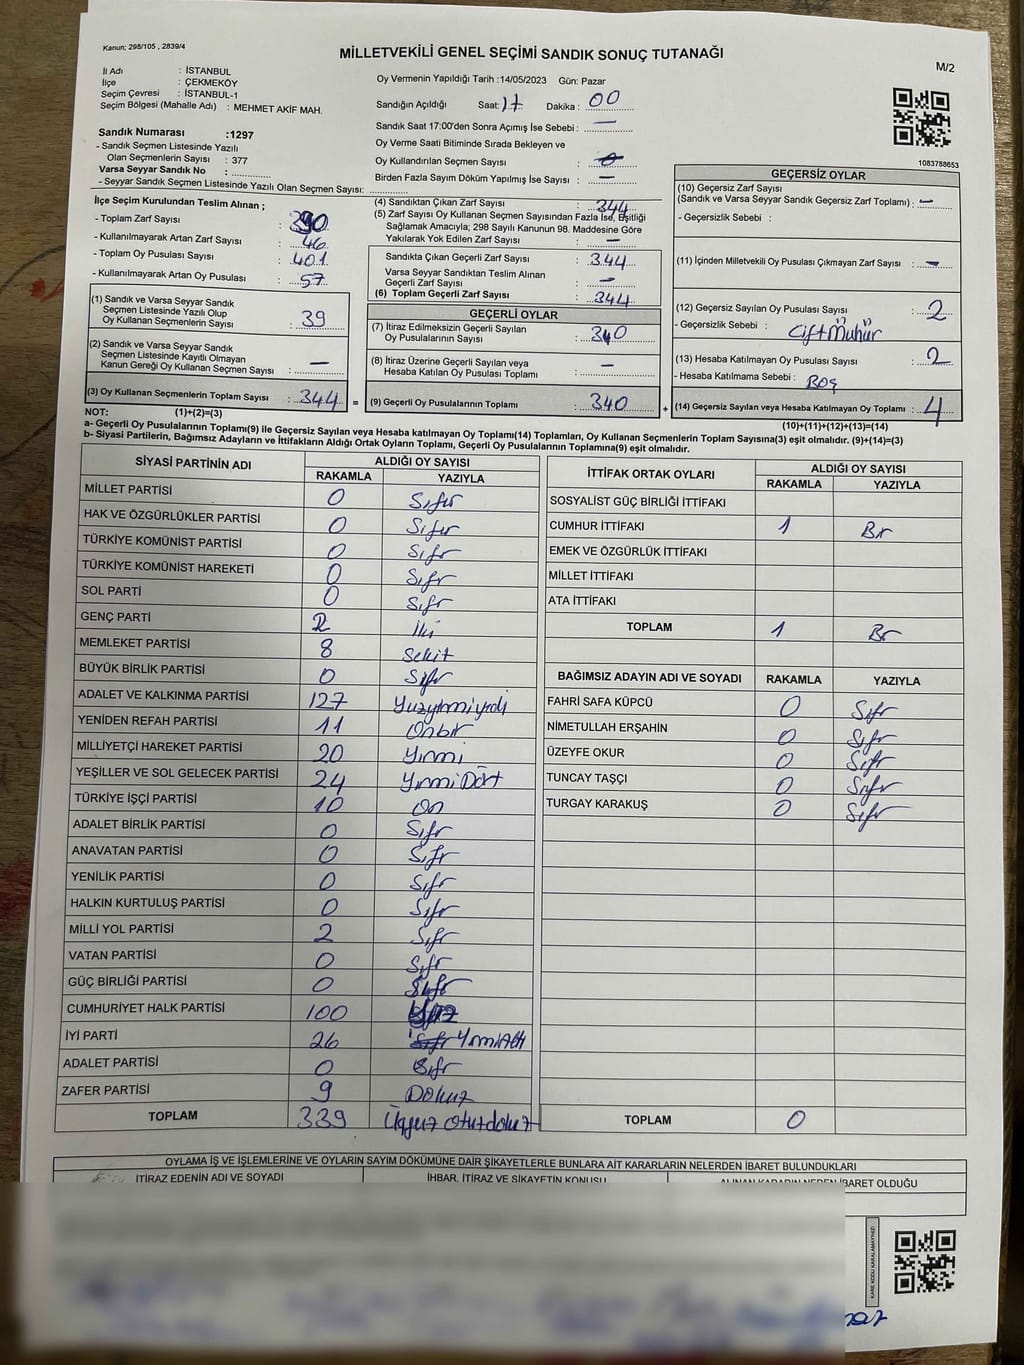 Kanun; 298/105 , 2839/4
MİLLETVEKİLİ GENEL SEÇİMİ SANDIK SONUÇ TUTANAĞI
M/2
İl Adı : İSTANBUL
İlçe : ÇEKMEKÖY
Seçim Çevresi : İSTANBUL-1
Seçim Bölgesi (Mahalle Adı) : MEHMET AKİF MAH.
Oy Vermenin Yapıldığı Tarih :14/05/2023 Gün: Pazar
Sandığın Açıldığı Saat: 17 Dakika : 00
Sandık Saat 17:00'den Sonra Açımış İse Sebebi : —
Oy Verme Saati Bitiminde Sırada Bekleyen ve
Oy Kullandırılan Seçmen Sayısı :
Birden Fazla Sayım Döküm Yapılmış İse Sayısı : —
1083788653
Sandık Numarası :1297
- Sandık Seçmen Listesinde Yazılı
Olan Seçmenlerin Sayısı : 377
Varsa Seyyar Sandık No :
- Seyyar Sandık Seçmen Listesinde Yazılı Olan Seçmen Sayısı:
İlçe Seçim Kurulundan Teslim Alınan ;
- Toplam Zarf Sayısı : 390
- Kullanılmayarak Artan Zarf Sayısı : 46
- Toplam Oy Pusulası Sayısı : 401
- Kullanılmayarak Artan Oy Pusulası : 57
(1) Sandık ve Varsa Seyyar Sandık
Seçmen Listesinde Yazılı Olup
Oy Kullanan Seçmenlerin Sayısı : 39
(2) Sandık ve Varsa Seyyar Sandık
Seçmen Listesinde Kayıtlı Olmayan
Kanun Gereği Oy Kullanan Seçmen Sayısı : —
(3) Oy Kullanan Seçmenlerin Toplam Sayısı : 344 =
(4) Sandıktan Çıkan Zarf Sayısı : 344
(5) Zarf Sayısı Oy Kullanan Seçmen Sayısından Fazla İse, Eşitliği
Sağlamak Amacıyla; 298 Sayılı Kanunun 98. Maddesine Göre
Yakılarak Yok Edilen Zarf Sayısı : —
Sandıkta Çıkan Geçerli Zarf Sayısı : 344
Varsa Seyyar Sandıktan Teslim Alınan
Geçerli Zarf Sayısı : —
(6) Toplam Geçerli Zarf Sayısı : 344
GEÇERLİ OYLAR
(7) İtiraz Edilmeksizin Geçerli Sayılan
Oy Pusulalarının Sayısı : 340
(8) İtiraz Üzerine Geçerli Sayılan veya
Hesaba Katılan Oy Pusulası Toplamı : —
(9) Geçerli Oy Pusulalarının Toplamı : 340 +
GEÇERSİZ OYLAR
(10) Geçersiz Zarf Sayısı
(Sandık ve Varsa Seyyar Sandık Geçersiz Zarf Toplamı) : —
- Geçersizlik Sebebi :
(11) İçinden Milletvekili Oy Pusulası Çıkmayan Zarf Sayısı : —
(12) Geçersiz Sayılan Oy Pusulası Sayısı : 2
- Geçersizlik Sebebi : Çift Mühür
(13) Hesaba Katılmayan Oy Pusulası Sayısı : 2
- Hesaba Katılmama Sebebi : Boş
(14) Geçersiz Sayılan veya Hesaba Katılmayan Oy Toplamı : 4
NOT: (1)+(2)=(3)
(10)+(11)+(12)+(13)=(14)
a- Geçerli Oy Pusulalarının Toplamı(9) ile Geçersiz veya Hesaba katılmayan Oy Toplamı(14) Toplamları, Oy Kullanan Seçmenlerin Toplam Sayısına(3) eşit olmalıdır. (9)+(14)=(3)
b- Siyasi Partilerin, Bağımsız Adayların ve İttifakların Aldığı Ortak Oyların Toplamı, Geçerli Oy Pusulalarının Toplamına(9) eşit olmalıdır.
SİYASİ PARTİNİN ADI ALDIĞI OY SAYISI
RAKAMLA YAZIYLA
MİLLET PARTİSİ 0 Sıfır
HAK VE ÖZGÜRLÜKLER PARTİSİ 0 Sıfır
TÜRKİYE KOMÜNİST PARTİSİ 0 Sıfr
TÜRKİYE KOMÜNİST HAREKETİ 0 Sıfr
SOL PARTİ 0 Sıfr
GENÇ PARTİ 2 İki
MEMLEKET PARTİSİ 8 Sekiz
BÜYÜK BİRLİK PARTİSİ 0 Sıfr
ADALET VE KALKINMA PARTİSİ 127 Yüzyirmiyedi
YENİDEN REFAH PARTİSİ 11 Onbir
MİLLİYETÇİ HAREKET PARTİSİ 20 Yirmi
YEŞİLLER VE SOL GELECEK PARTİSİ 24 Yirmi Dört
TÜRKİYE İŞÇİ PARTİSİ 10 On
ADALET BİRLİK PARTİSİ 0 Sıfr
ANAVATAN PARTİSİ 0 Sıfr
YENİLİK PARTİSİ 0 Sıfr
HALKIN KURTULUŞ PARTİSİ 0 Sıfr
MİLLİ YOL PARTİSİ 2 Sıfr
VATAN PARTİSİ 0 Sıfr
GÜÇ BİRLİĞİ PARTİSİ 0 Sıfr
CUMHURİYET HALK PARTİSİ 100
İYİ PARTİ 26 Sıfr YirmiAltı
ADALET PARTİSİ 0 Sıfr
ZAFER PARTİSİ 9 Dokuz
TOPLAM 339 Üçyüz otuzdokuz
İTTİFAK ORTAK OYLARI ALDIĞI OY SAYISI
RAKAMLA YAZIYLA
SOSYALİST GÜÇ BİRLİĞİ İTTİFAKI
CUMHUR İTTİFAKI 1 Bir
EMEK VE ÖZGÜRLÜK İTTİFAKI
MİLLET İTTİFAKI
ATA İTTİFAKI
TOPLAM 1 Bir
BAĞIMSIZ ADAYIN ADI VE SOYADI RAKAMLA YAZIYLA
FAHRİ SAFA KÜPCÜ 0 Sıfr
NİMETULLAH ERŞAHİN 0 Sıfr
ÜZEYFE OKUR 0 Sıfr
TUNCAY TAŞÇI 0 Sıfr
TURGAY KARAKUŞ 0 Sıfr
TOPLAM 0
OYLAMA İŞ VE İŞLEMLERİNE VE OYLARIN SAYIM DÖKÜMÜNE DAİR ŞİKAYETLERLE BUNLARA AİT KARARLARIN NELERDEN İBARET BULUNDUKLARI
İTİRAZ EDENİN ADI VE SOYADI İHBAR, İTİRAZ VE ŞİKAYETİN KONUSU ALINAN KARARIN NEDEN İBARET OLDUĞU
KARE KODU KARALAMAYINIZ!